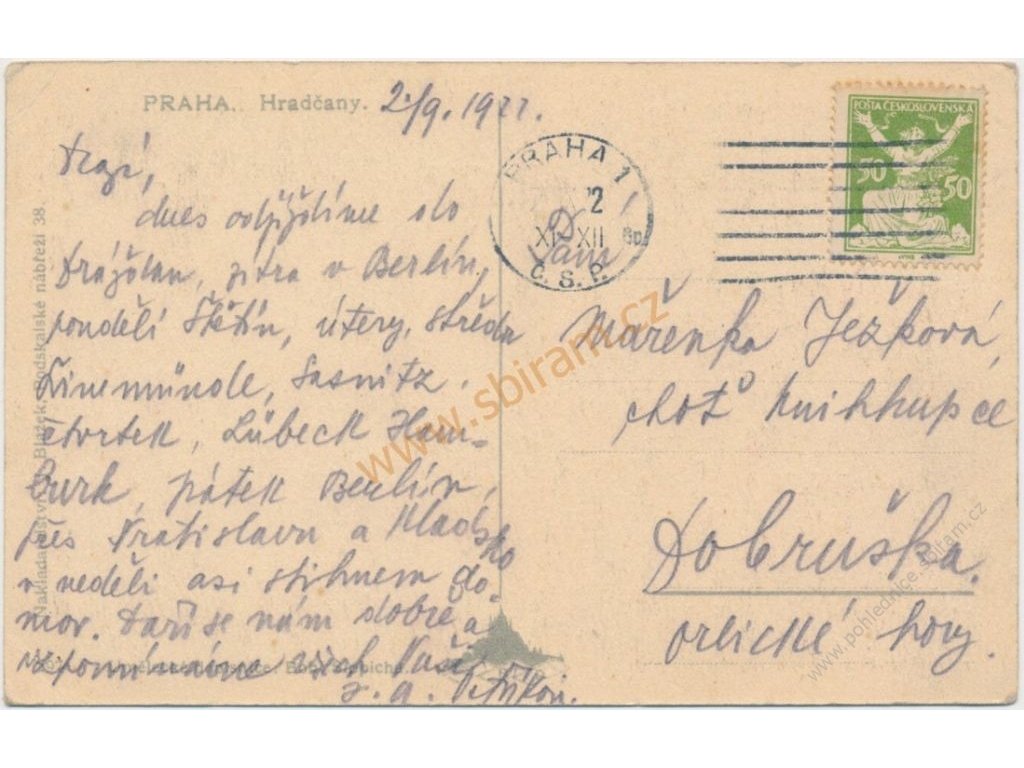 PRAHA. Hradčany. 2/9. 1922.
Drazí,
dnes odjíždíme do
Drážďan, zítra v Berlín,
pondělí Štětín, úterý, středa
Swinemünde, Sasnitz.
čtvrtek, Lübeck Ham-
burk, pátek Berlín,
přes Vratislavu a Kladsko
v neděli asi stihnem do-
mov. Daří se nám dobře a
vzpomínáme všech Vaši
Petříkovi.
POŠTA ČESKOSLOVENSKÁ
50 50
PRAHA 1
2
XI-XII
Č.S.P.
Paní
Mařenka Ježková,
choť knihkupce
Dobruška.
orlické hory.
Nakladatelství Blažek, Podskalské nábřeží 38.
www.sbiram.cz
www.pohlednice.sbiram.cz